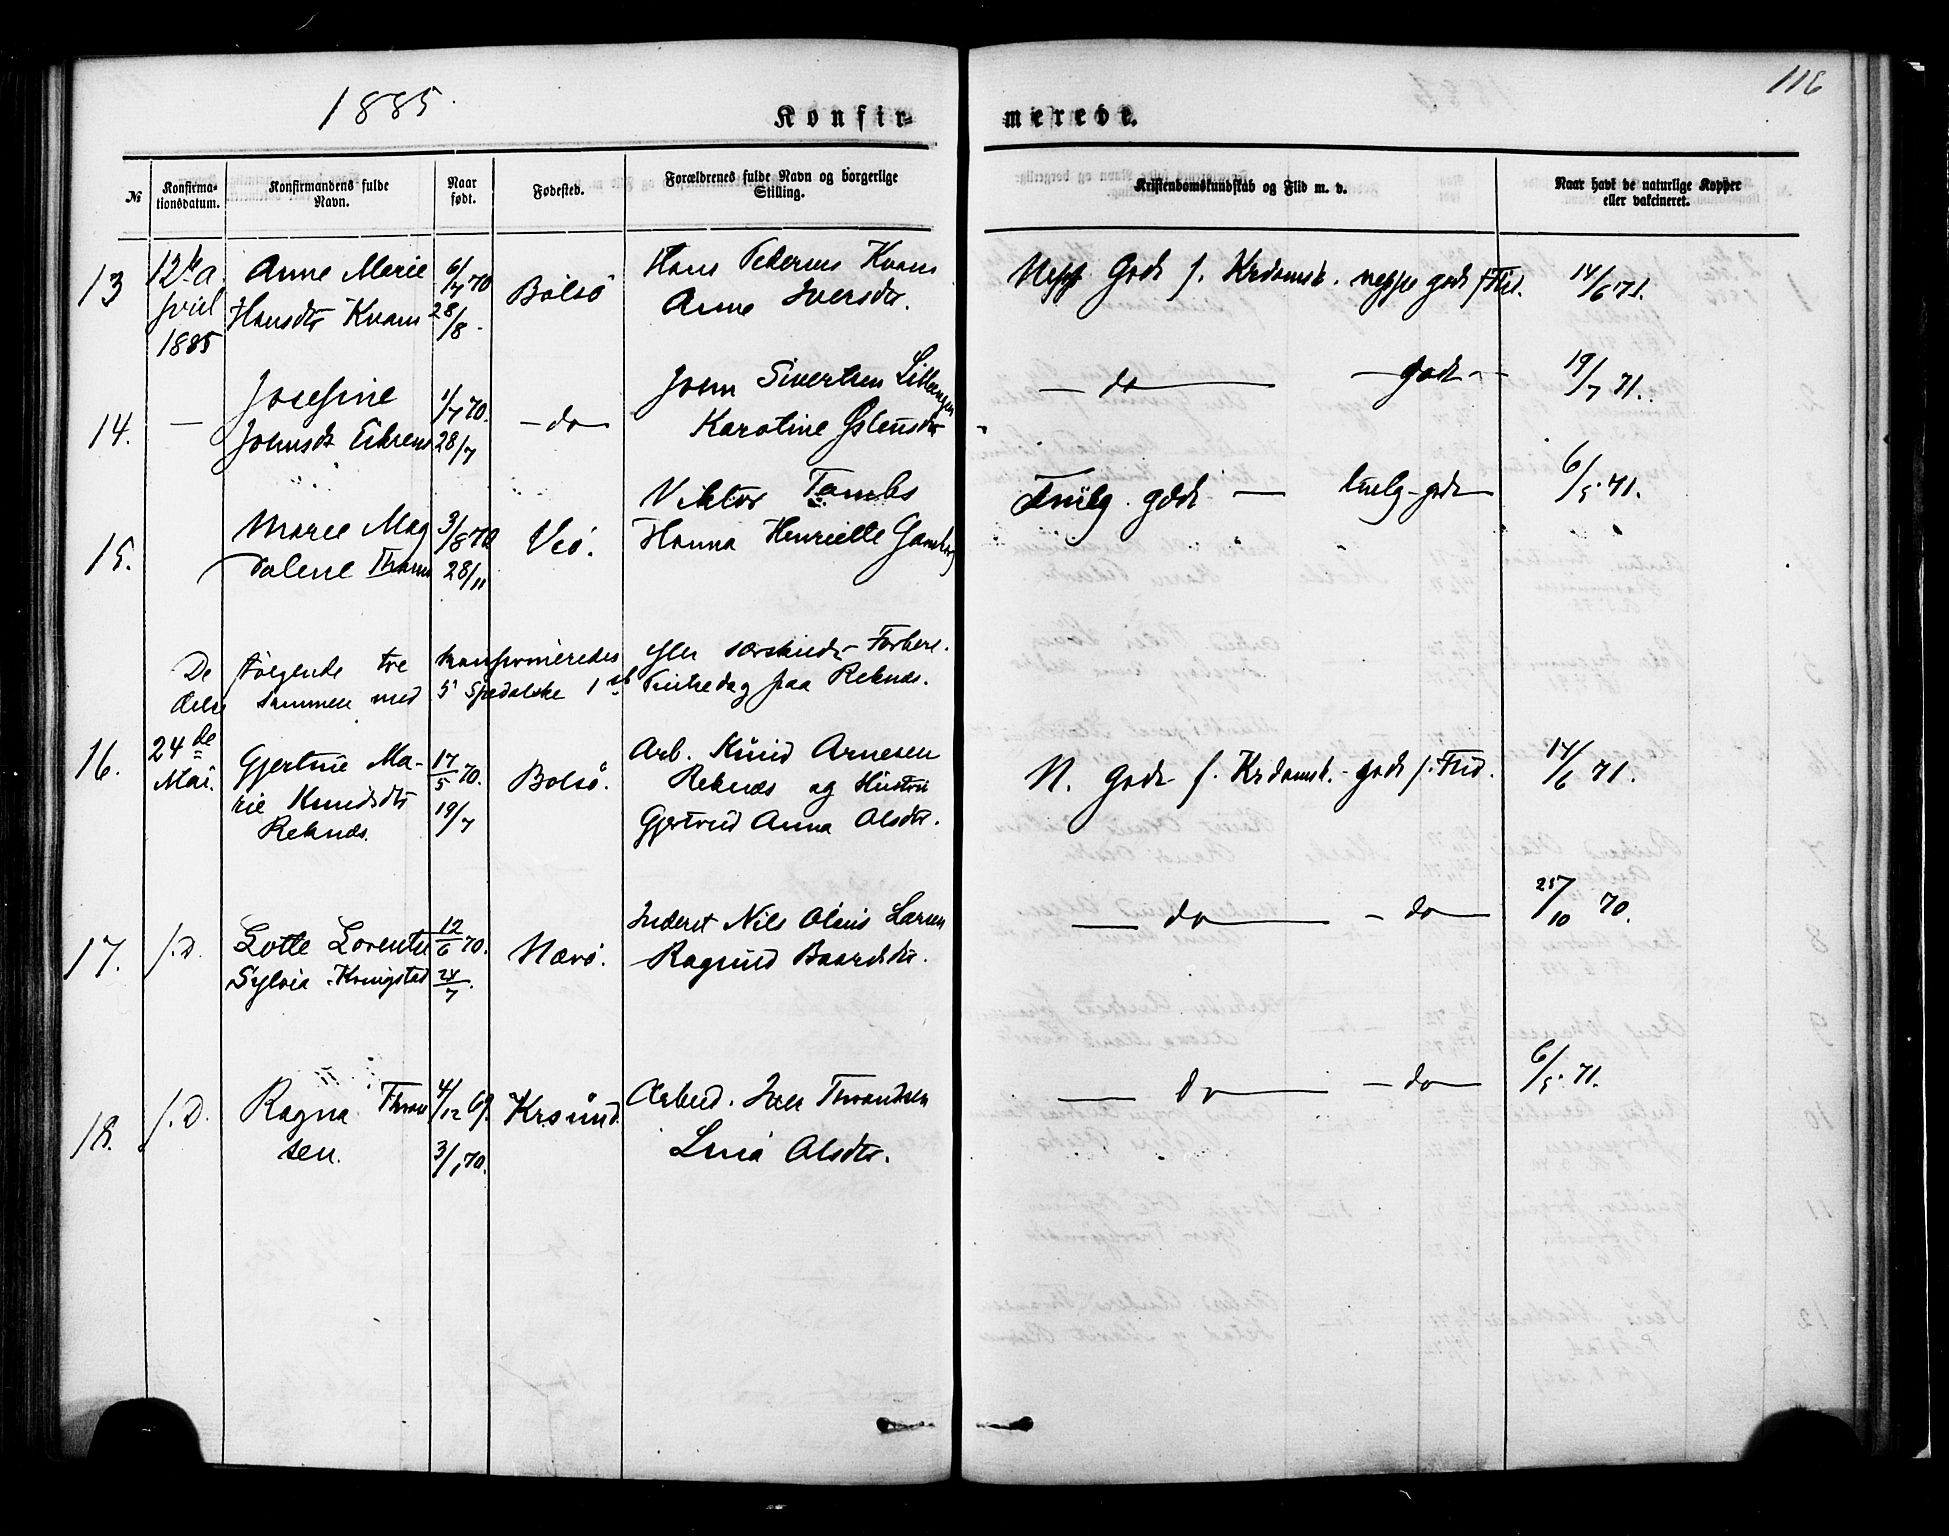 1885.
116
Konfir-
merede.
№
Konfirma-
tionsdatum.
Konfirmandens fulde
Navn.
Naar
født.
Fødested.
Forældrenes fulde Navn og borgerlige
Stilling.
Kristendomskundskab og Flid m. v.
Naar havt de naturlige Kopper
eller vakcineret.
13
12te a
pril
1885
Anne Marie
Hansdtr Kvam
6/7 70
28/8.
Bolsö
Hans Pedersen Kvam
Anne Iversdtr.
Nppe Godt f. Krdomsk. neppe godt f Flid.
14/6 71.
14.
—
Josefine
Johnsdt
1/7 70.
28/7
- do -
John Sivertsen
Karoline Østensdtr
— do — — godt -
19/7 71.
15.
Marie Mag
dalene
3/8 70
28/11
Veö.
Viktor
Hanna Henriette
Tmlg. godt — tmlg. godt
6/5 71.
De følgende tre konfirmeredes efter særskildt Forbere-
delse sammen med 5 Spedalske 1ste Pintsedag paa Reknæs.
16.
24de
Mai.
Gjertine Ma-
rie Knudsdtr
Reknæs.
17/5 70.
19/7
Bolsö.
Arb. Knud Arnesen
Reknæs og Hustru
Gjertrud Anna Olsdtr.
N. Godt f. Krdomsk. - godt f. Flid.
14/6 71.
17.
s. D.
Lotte Lorentse
Sylvia Kringstad
12/6 70.
24/7.
Nærö.
Inderst Nils Olaus Larsen
Ragnild Baardsdtr.
— do — - do —
25/10 70.
18.
s. D.
Ragna Thran
sen.
4/12 69.
3/1 70.
Krsund.
Arbeid. Iver Thrandsen
Lina Olsdtr.
— do — - do —
6/5 71.